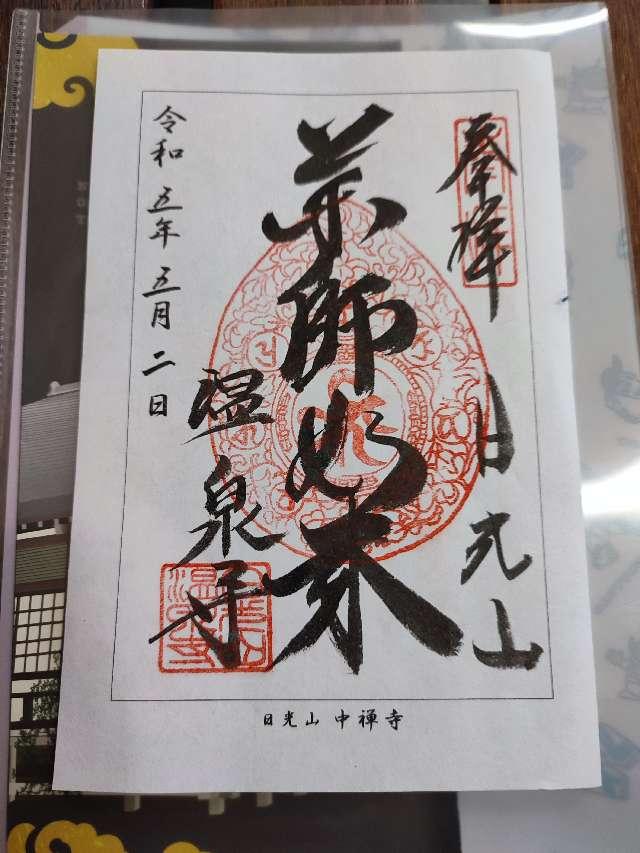 奉拝
日光山
薬師如来
温泉寺
令和五年五月二日
日光山 中禅寺